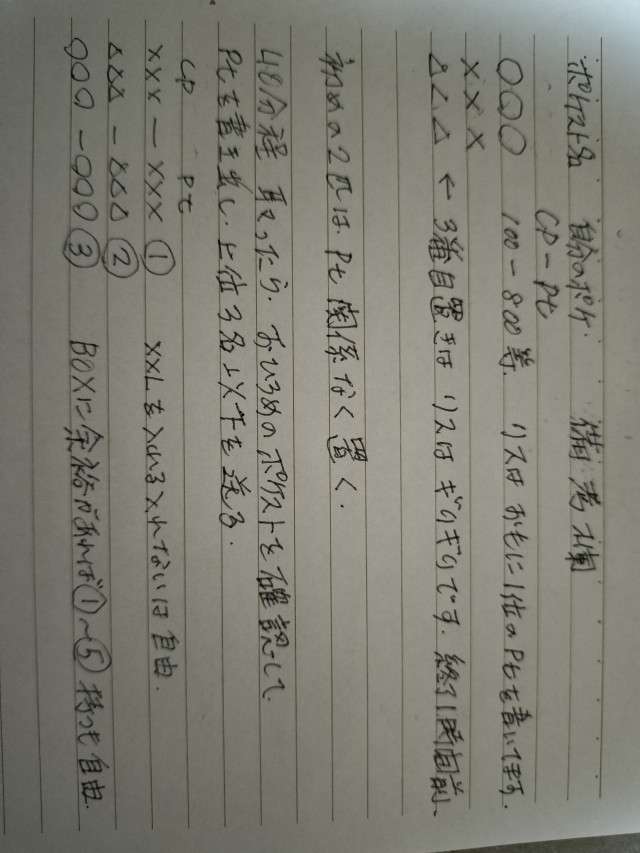 ポケスト名 自分のポケ. 備考欄
CP - Pt
○○○ 100-800等. リスは おもに1位のPtを書いてます.
×××
△△△ ← 3番目置きは リスは ギリギリです. 終了1時間前、
初めの2匹は Pt 関係なく置く.
40分程 取ったら. おひろめのポケストを確認して
Ptを書き出し. 上位3名以下を送る.
CP Pt
××× - ××× ① XXLを入れる入れないは自由.
△△△ - △△△ ②
○○○ - ○○○ ③ BOXに余裕があれば①~⑤持つも自由.